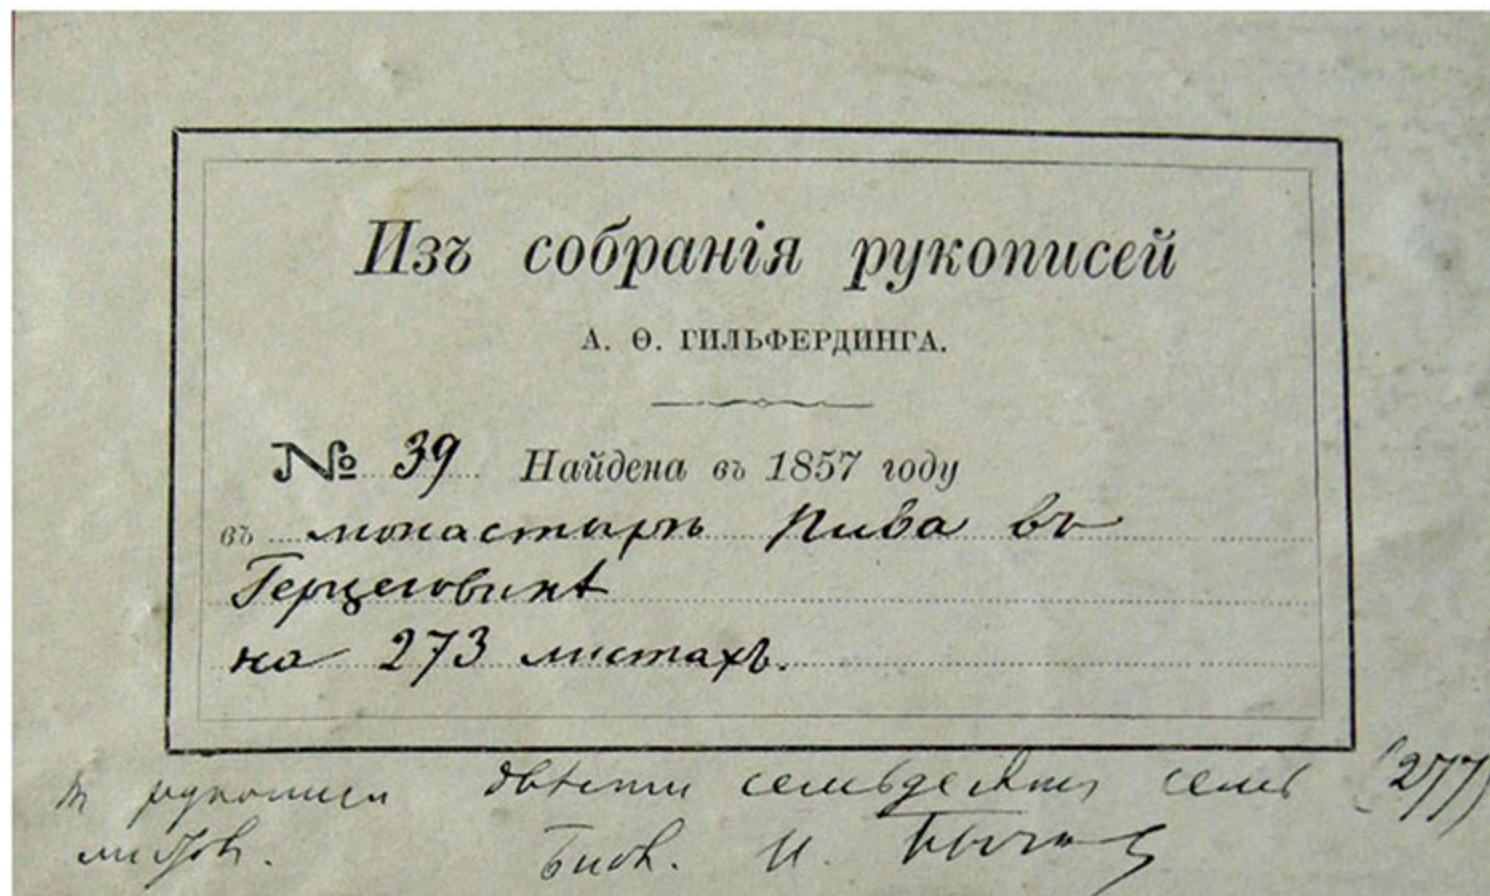 Изъ собранія рукописей
А. Ѳ. ГИЛЬФЕРДИНГА.
№ 39 Найдена въ 1857 году
въ монастырѣ Пива въ
Герцеговинѣ
на 273 листахъ.
Въ рукописи двѣсти семьдесятъ семь (277)
листовъ. Библ. И. Бычков